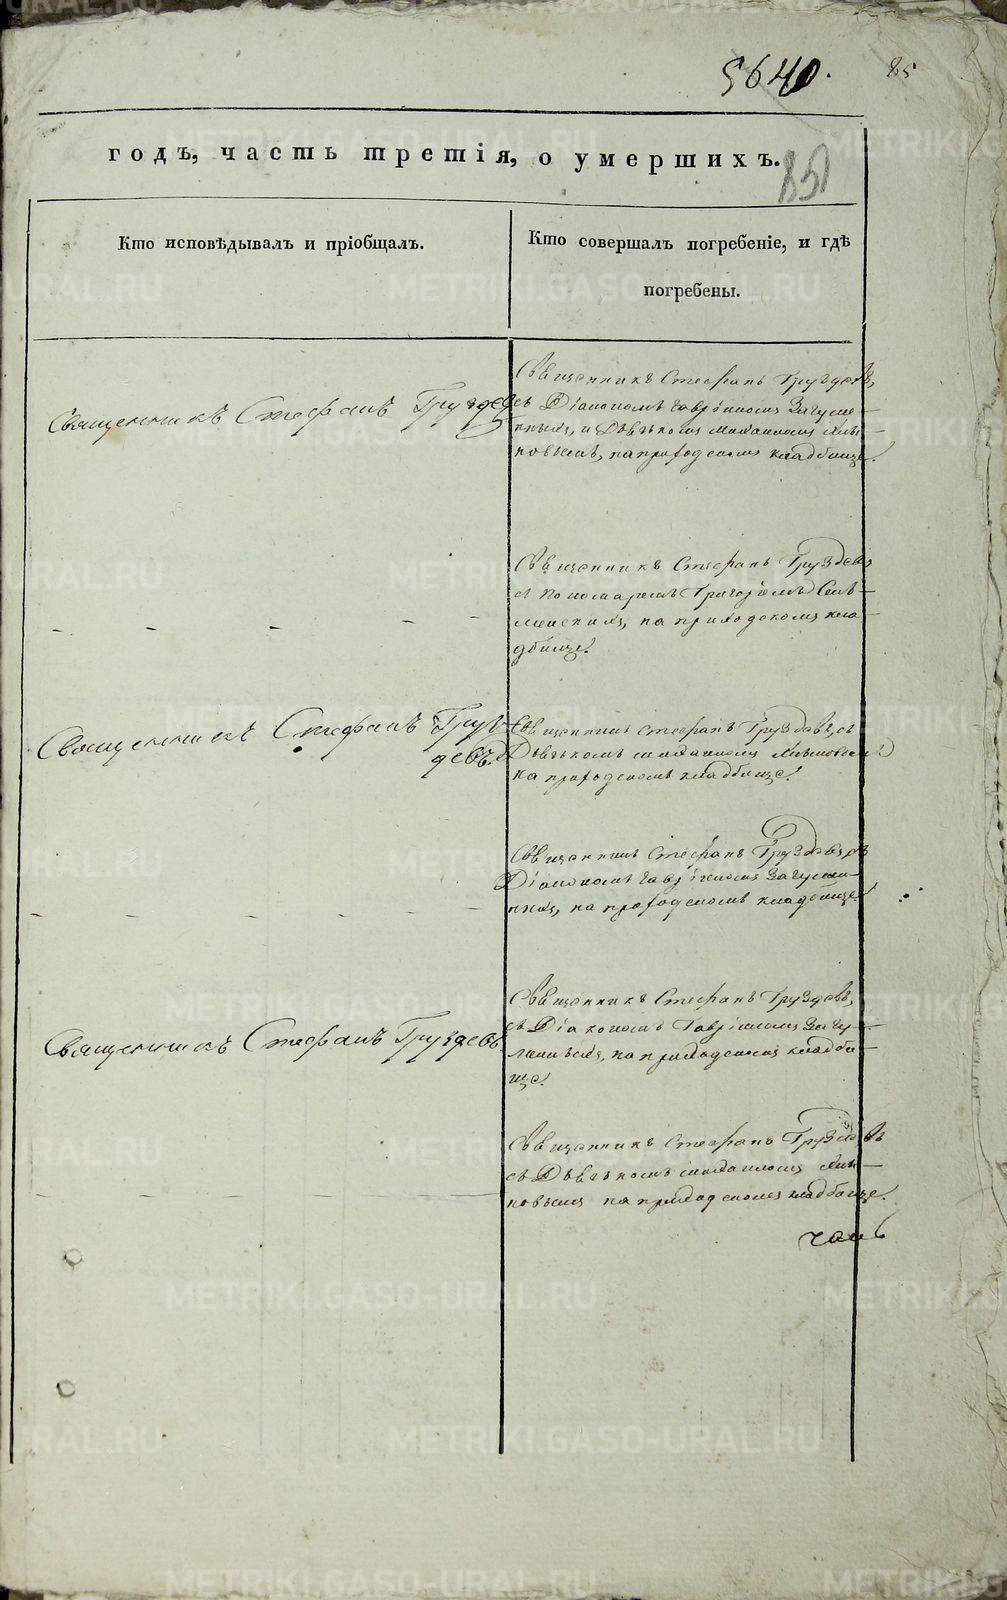 5640.
85
годъ, часть третія, о умершихъ.
85
Кто исповѣдывалъ и пріобщалъ.
Кто совершалъ погребеніе, и гдѣ
погребены.
Священникъ Стефанъ Груздевъ
Священникъ Стефанъ Груздевъ,
съ Діакономъ Гавріиломъ Загуме-
нныхъ, и Дьячкомъ Михаиломъ
на приходскомъ кладбище.
Священникъ Стефанъ Груздевъ
съ Пономаремъ Григоріемъ
на приходскомъ кла
дбище.
Священникъ Стефанъ Груз-
девъ.
Священникъ Стефанъ Груздевъ, съ
Дьячкомъ Михаиломъ
на приходскомъ кладбище.
Священникъ Стефанъ Груздевъ, съ
Діакономъ Гавріиломъ Загуме-
нныхъ, на приходскомъ кладбище.
Священникъ Стефанъ Груздевъ.
Священникъ Стефанъ Груздевъ,
съ Діакономъ Гавріиломъ
на приходскомъ кладби-
ще.
Священникъ Стефанъ Груздевъ
съ Дьячкомъ Михаиломъ
на приходскомъ кладбище.
METRIKI.GASO-URAL.RU